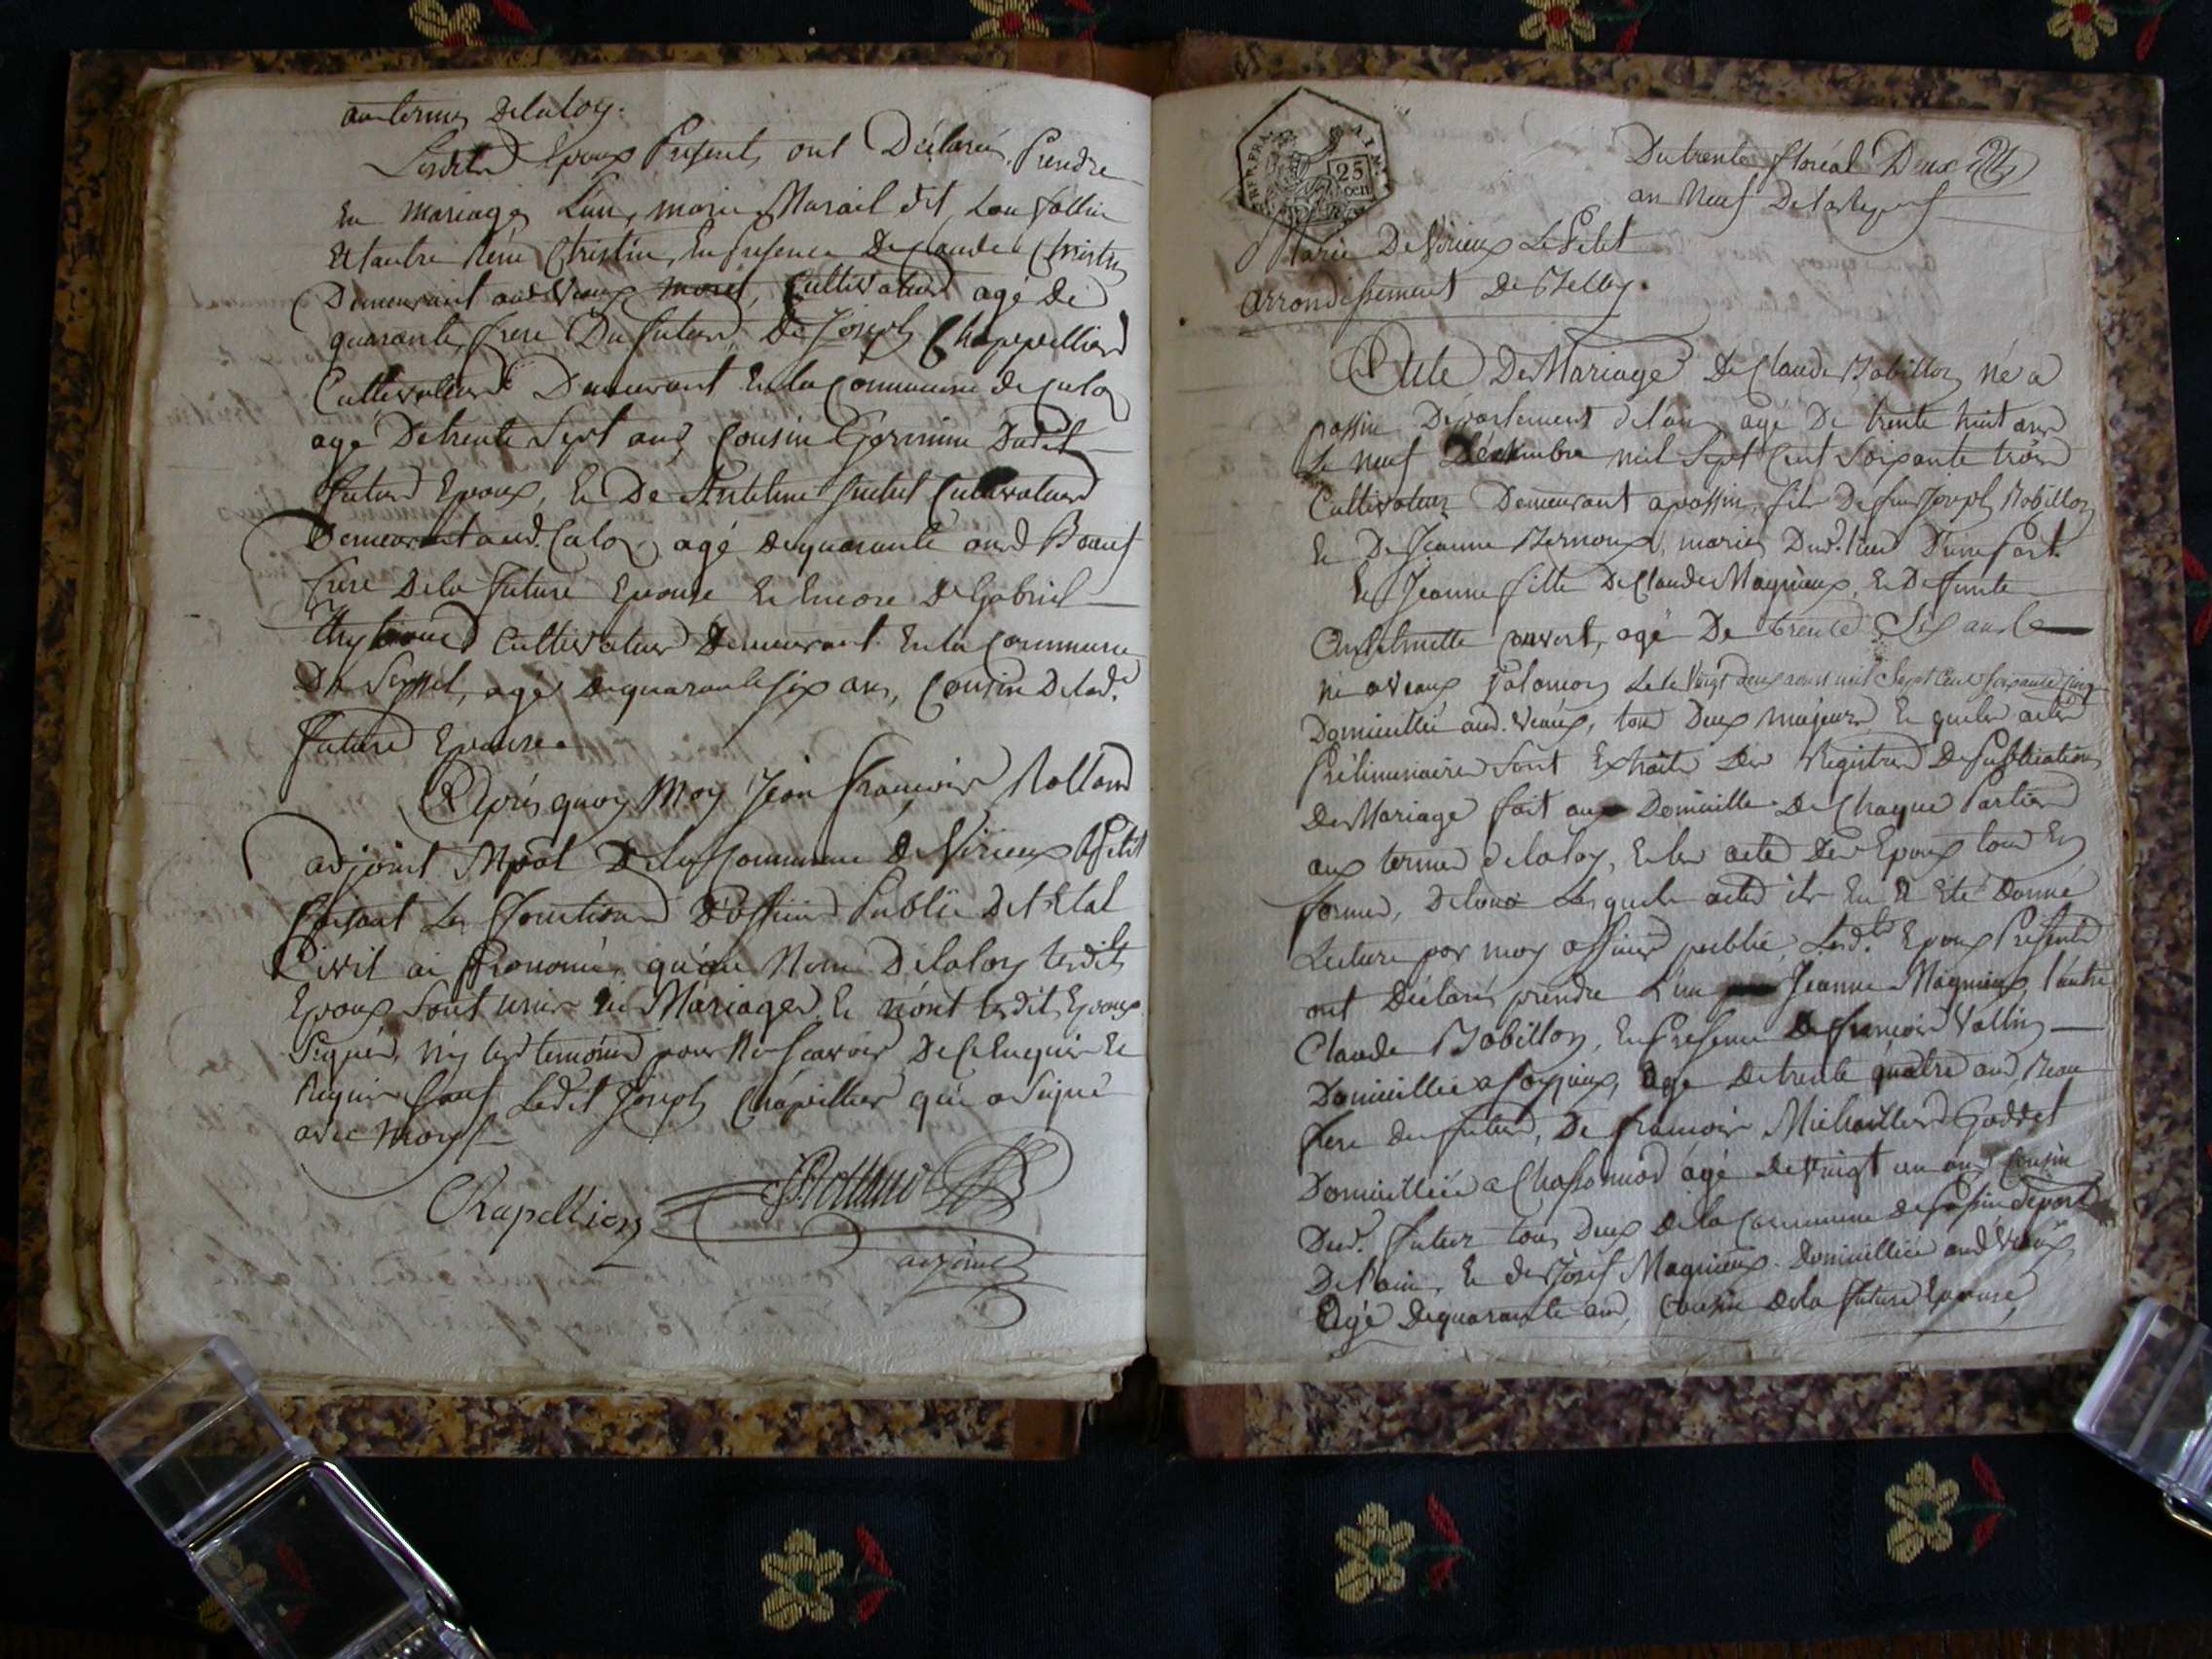 aux termes De la loy.
Lesdits Epoux Presents ont Déclarés Prendre
En Mariage L'un, marie Marail dit
Et l'autre Réné Christin, En presence De Claude Christin
Demeurant aud. Veaux, Cultivateur agé de
quarante, frere Du futur, De Joseph Chapepellier
Cultivateur Demeurant En la Commune de Culoz
agé De trente Sept ans, Cousin Germain Dudit
futur Epoux, Et De Anthelme Cultivateur
Demeurant aud. Culoz, agé de quarante ans Beauf
frere De la future Epouse Et Encore De Gabriel
Cultivateur Demeurant En la Commune
De Seyssel, agé de quarante six ans, Cousin De lad.e
future Epouse.
Après quoy Moy Jean François Rolland
adjoint Mpāl De la Commune De Virieux le Petit
faisant Les fonctions D'officier Public De l'Etat
Civil ai Prononcé, qu'au Nom De la loy lesdits
Epoux Sont unis En Mariage, Et n'ont lesdits Epoux
Signés, ny les temoins pour Ne Scavoir De Ce Enquis Et
Requis Sauf Ledit Joseph Chapellier qui a Signé
avec Moy
Chapellier J. Rolland
adjoint
25
cen
Du trente floréal Deux
an Neuf De la
Mairie De Virieux Le Petit
Arrondissement De Belley.
Acte De Mariage De Claude Robillon, né a
passin Departement de l'ain, agé De trente huit ans
Le neuf Décembre mil Sept Cent Soixante trois
Cultivateur Demeurant a passin, fils De feu Joseph Robillon
Et De Jeanne Bernoux, mariés Dud. lieu D'une part.
Et Jeanne fille De Claude Magnieux, Et De funte
Anthelmette, agé De trente Six ans
né a Veaux Le vingt deux aoust mil Sept Cent Soixante Cinq
Domicilliée aud. Veaux, tous Deux majeurs, Les quels actes
Préliminaires Sont Extraits Des Registres De Publications
De Mariage fait aux Domicilles De Chaque Parties
aux termes de la loy, Et les actes Des Epoux tous En
formes, De tous Lesquels actes il En A Eté Donné
Lecture par moy officier public, Lesd.ts Epoux Presents
ont Déclarés prendre L'un Jeanne Magnieux, l'autre
Claude Robillon, En Presence De françois Vallin
Domicillié a, agé De trente quatre ans, Beau
frere du futur, De françois Michaillier Goddet
Domicillié a Chassonnod agé de Vingt un ans Cousin
Dud. futur tous Deux De la Commune de Passin Depart.
De l'ain, Et de Josef Magnieux Domicillié aud Veaux
Agé De quarante ans, Cousin De la future Epouse,